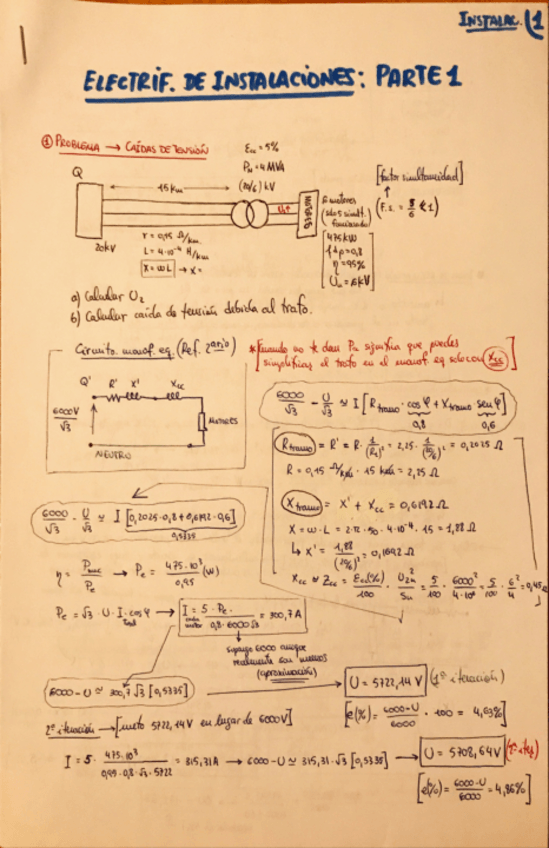 INSTALAC. (1
ELECTRIF. DE INSTALACIONES: PARTE 1
① PROBLEMA → CAÍDAS DE TENSIÓN
Ecc = 5%
PN = 4 MVA
(20/6) kV
[factor simultaneidad]
(F.s. = 5/6 < 1)
Q
15 km
U2
MOTORES
6 motores
(sólo 5 simult. funcionando)
20kV
r = 0,15 Ω/km
L = 4·10⁻⁴ H/km
X = ωL → X =
475 kW
fdp = 0,8
η = 95%
Un = 6kV
a) Calcular U2
b) Calcular caída de tensión debida al trafo.
Circuito monof. eq. (Ref. 2ario)
* [Cuando no te dan Pcc significa que puedes
simplificar el trafo en el monof. eq. solo con Xcc]
Q' R' X' Xcc
6000V/√3
Motores
NEUTRO
6000/√3 - U/√3 ≃ I [Rtramo · cos φ + Xtramo sen φ]
0,8 0,6
Rtramo = R' = R · 1/(Rt)² = 2,25 · 1/(20/6)² = 0,2025 Ω
R = 0,15 Ω/km · 15 km = 2,25 Ω
Xtramo = X' + Xcc = 0,6192 Ω
X = ω·L = 2·π·50·4·10⁻⁴·15 = 1,88 Ω
↳ X' = 1,88/(20/6)² = 0,1692 Ω
Xcc ≃ Zcc = Ecc(%)/100 · U2n²/Sn = 5/100 · 6000²/4·10⁶ = 5/100 · 6²/4 = 0,45 Ω
6000/√3 - U/√3 ≃ I [0,2025·0,8 + 0,6192·0,6]
0,5335
η = Pmec/Pe → Pe = 475·10³/0,95 (W)
Pe = √3 · U · I · cos φ → I = 5·Pe/0,8·6000√3 = 300,7 A
cada motor
supongo 6000 aunque
realmente son menos
(aproximación)
6000 - U ≃ 300,7 √3 [0,5335] → U = 5722,14 V (1ª iteración)
[e(%) = 6000-U/6000 · 100 = 4,63%]
2ª iteración → [meto 5722,14V en lugar de 6000V]
I = 5 · 475·10³/0,95·0,8·√3·5722 = 315,31A → 6000 - U ≃ 315,31·√3 [0,5335] → U = 5708,64V
[e(%) = 6000-U/6000 = 4,86%]